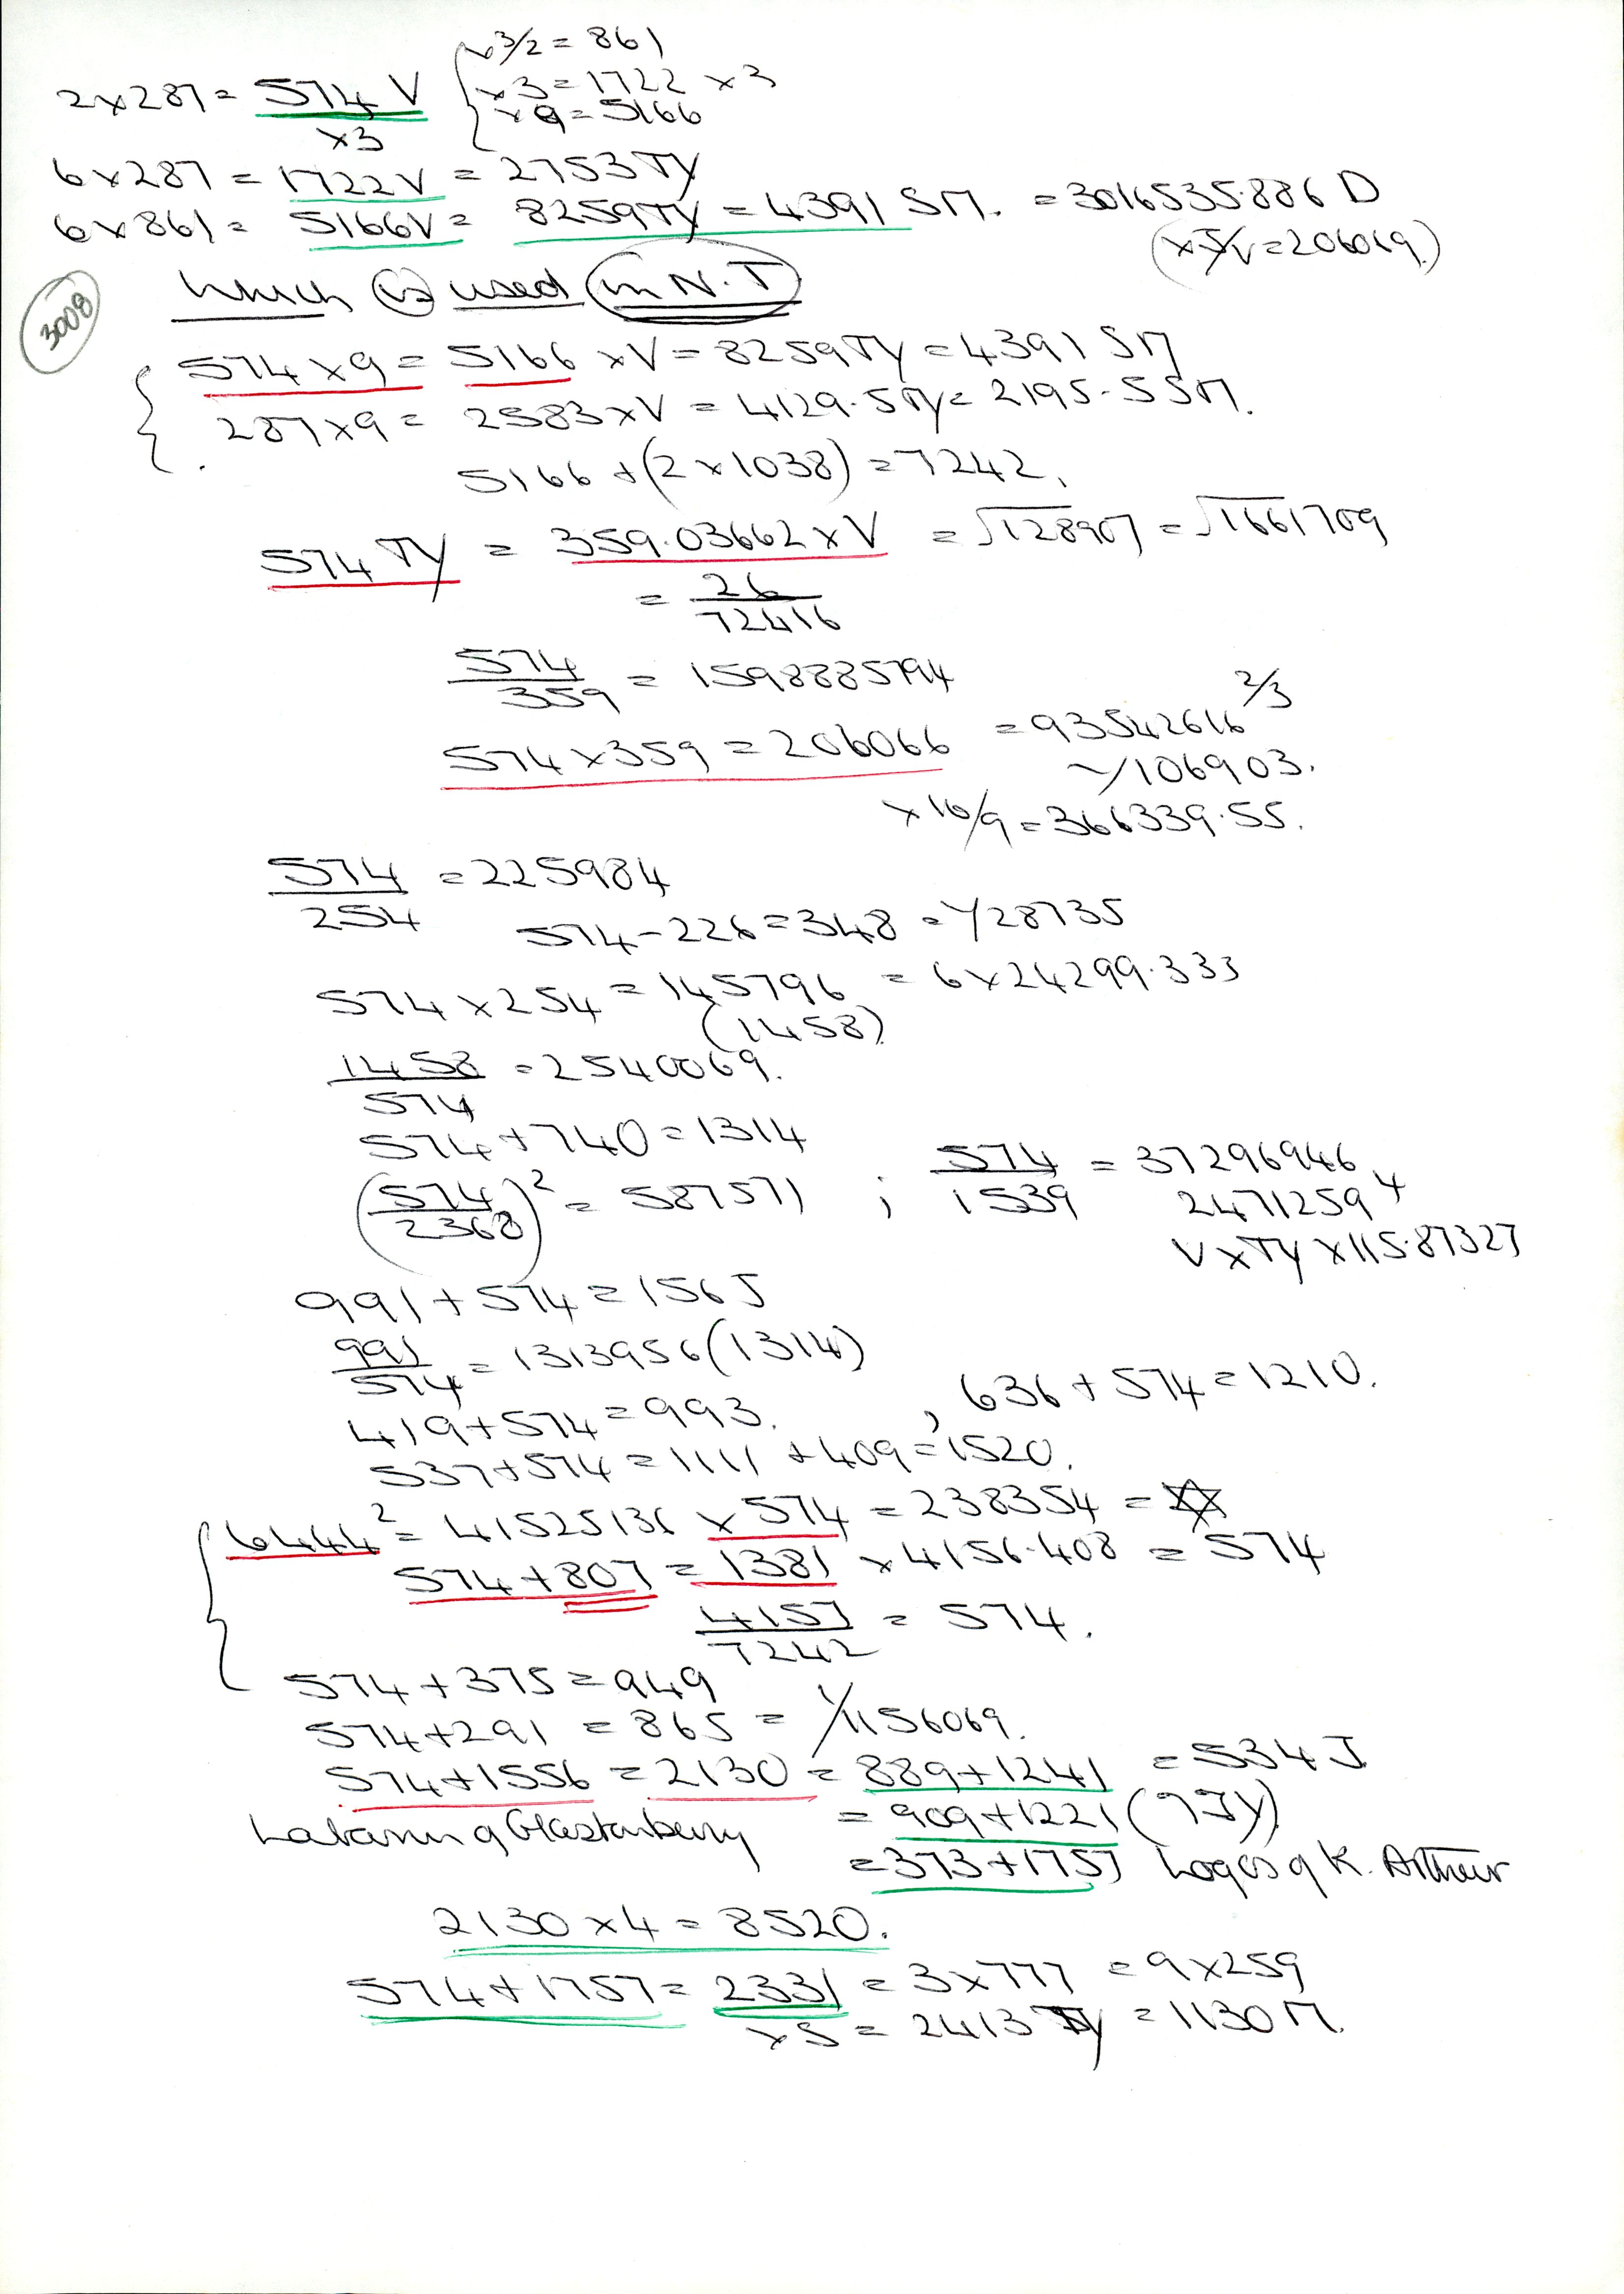 ×3/2 = 861
2×287 = 574 V ×3 = 1722 ×3
×3 ×9 = 5166
6×287 = 1722V = 2753 TY
6×861 = 5166V = 8259TY = 4391 SM. = 3016535.886 D
(×J/V = 206069.)
which is used in N.T
3008
574×9 = 5166 ×V = 8259TY = 4391 SM
287×9 = 2583×V = 4129.5TY = 2195.5SM.
5166 + (2×1038) = 7242.
574 TY = 359.03662×V = √128907 = √1661709
= 26/72416
574/359 = 1598885794
574×359 = 206066 = 93542616 2/3
1/106903.
×16/9 = 366339.55.
574/254 = 225984
574-226 = 348 = 1/28735
574×254 = 145796 = 6×24299.333
(1458)
1458/574 = 2540069.
574+740 = 1314
(574/2368)² = 587571 ; 574/1539 = 37296946
2471259 4
V×TY×115.87327
991+574 = 1565
991/574 = 1313956 (1314)
419+574 = 993. , 636+574 = 1210.
537+574 = 1111 +409 = 1520.
6444² = 41525136 ×574 = 238354 = ✡
574+807 = 1381 ×4156.408 = 574
4157/7242 = 574.
574+375 = 949
574+291 = 865 = 1/1156069.
574+1556 = 2130 = 889+1241 = 534 J
= 909+1221 (7JY)
Glastonbury = 373+1757 Logos of K. Arthur
2130×4 = 8520.
574+1757 = 2331 = 3×777 = 9×259
×S = 2413 TY = 1130M.